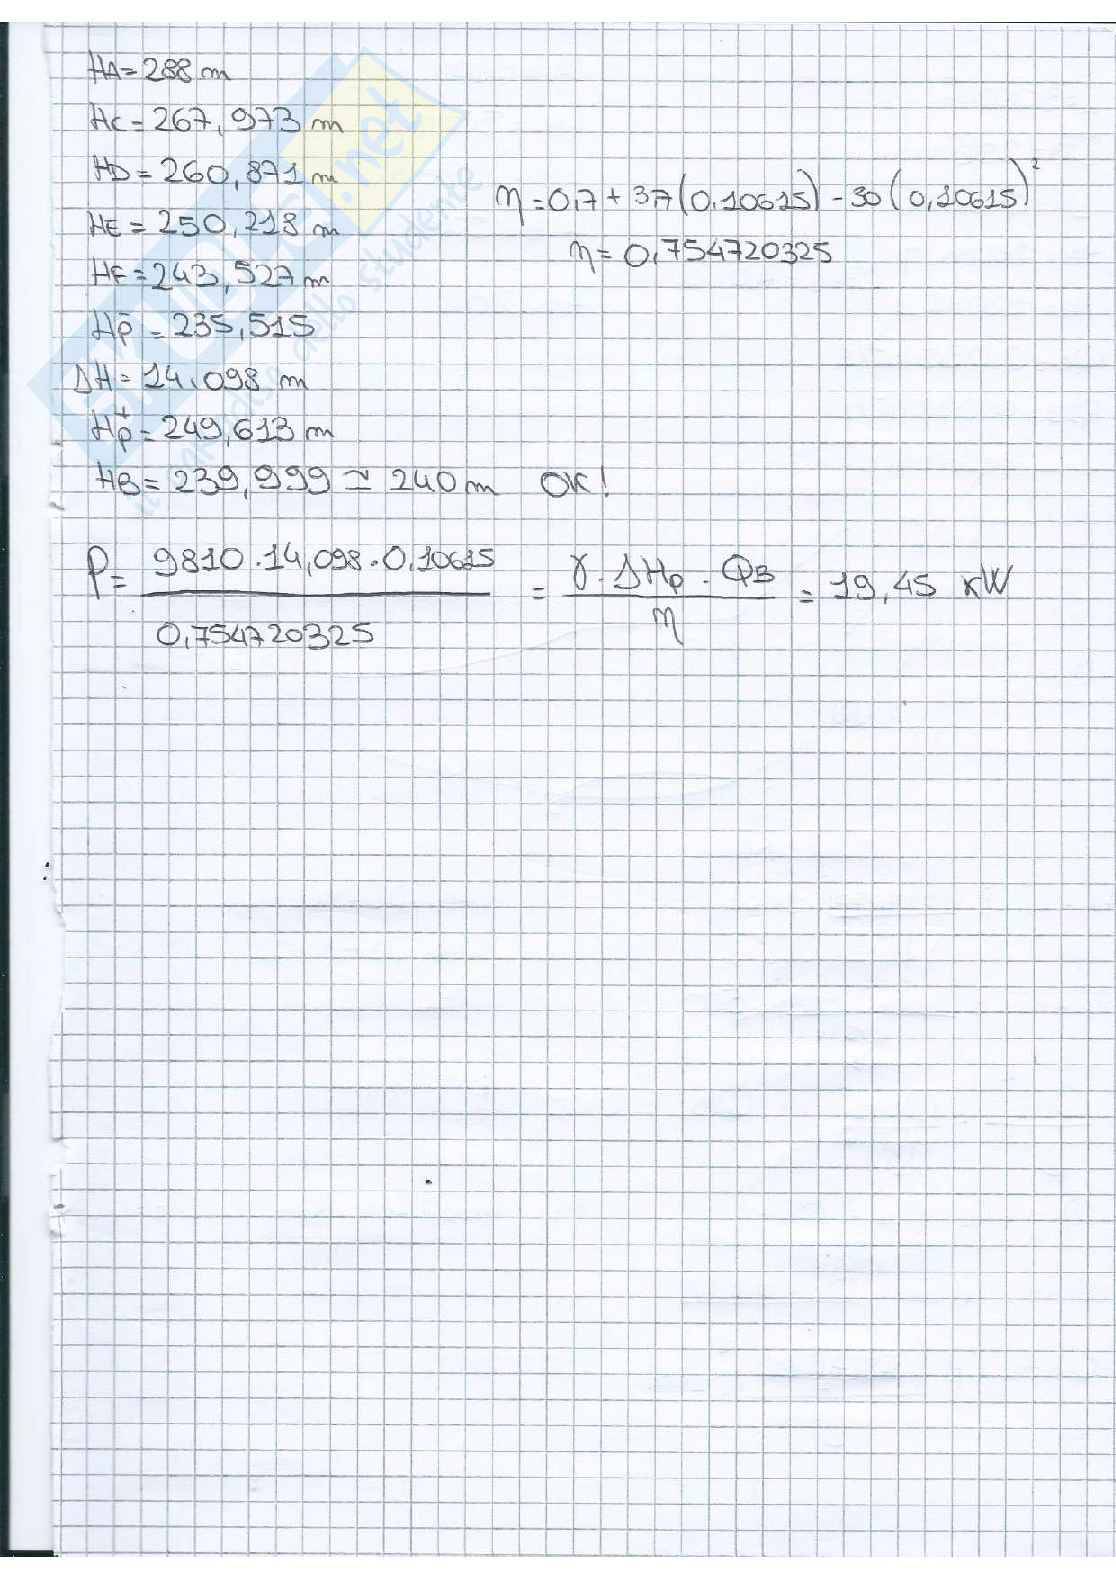 HA = 288 m
HC = 267,973 m
HD = 260,871 m
HE = 250,218 m
HF = 243,527 m
Hp⁻ = 235,515
ΔH = 14,098 m
Hp⁺ = 249,613 m
HB = 239,999 ≃ 240 m OK!
η = 0,7 + 3,7 (0,10615) - 30 (0,10615)²
η = 0,754720325
P = 9810 · 14,098 · 0,10615 / 0,754720325 = γ · ΔHp · QB / η = 19,45 kW
SKUOLA.net
dello studente